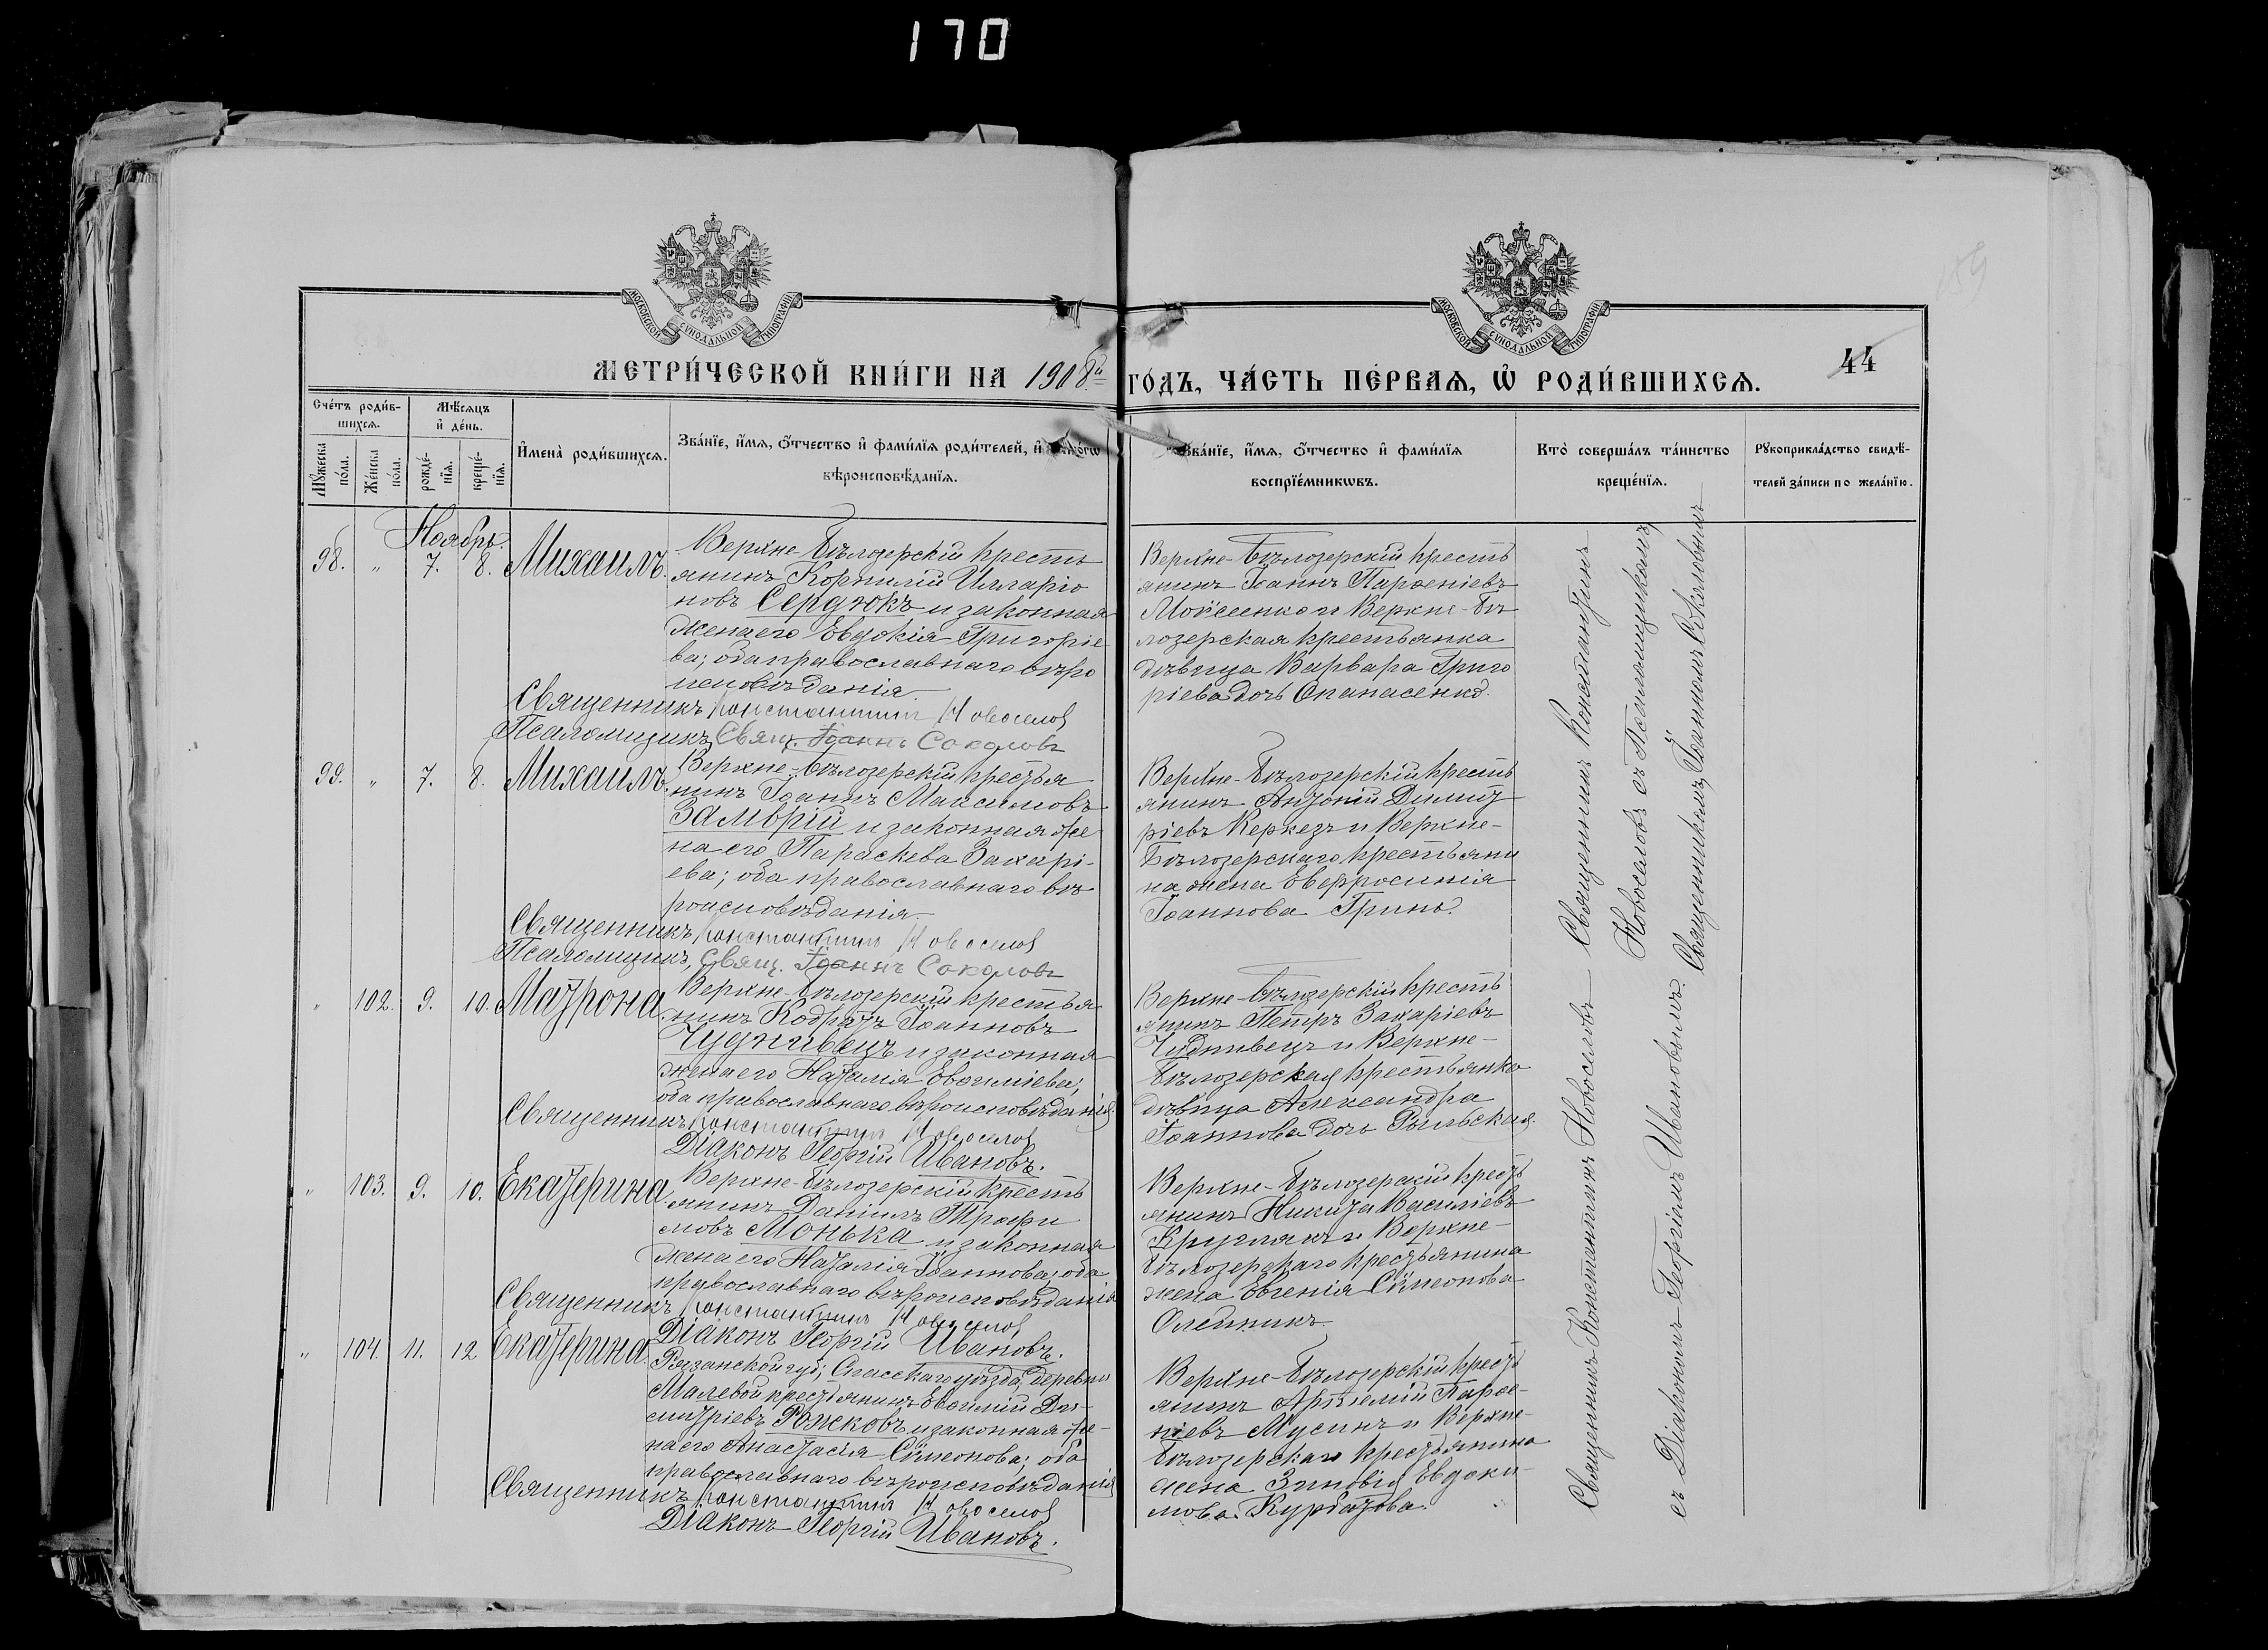 170
МОСКОВСКОЙ СѴНОДАЛЬНОЙ ТИПОГРАФІИ
МОСКОВСКОЙ СѴНОДАЛЬНОЙ ТИПОГРАФІИ
МЕТРИ́ЧЕСКОЙ КНИ́ГИ НА 1908й
ГО́ДЪ, ЧА́СТЬ ПЕ́РВАѦ, Ѡ҆ РОДИ́ВШИХСѦ.
44
Сче́тъ роди́в-
шихсѧ.
Мѣ́сѧцъ
и҆ де́нь.
Мꙋ́жеска
по́ла.
Же́нска
по́ла.
рожде́-
нїѧ.
креще́-
нїѧ.
И҆мена̀ роди́вшихсѧ.
Зва́нїе, и҆́мѧ, ѻ҆́тчество и҆ фами́лїѧ роди́телей, и҆
вѣроисповѣ́данїѧ.
Зва́нїе, и҆́мѧ, ѻ҆́тчество и҆ фами́лїѧ
воспрїе́мникѡвъ.
Кто̀ соверша́лъ та́инство
креще́нїѧ.
Рꙋкоприкла́дство свидѣ́-
телей за́писи по жела́нїю.
Ноябрь.
98. „ 7. 8. Михаилъ.
Верхне-Бѣлозерскій кресть
янинъ Корнилій Илларіо
новъ Сердюкъ и законная
жена его Евдокія Григоріе
ва; оба православнаго вѣро
исповѣданія.
Священникъ Константинъ Новоселов
Псаломщикъ, Свящ. Іоаннъ Соколовъ
Верхне-Бѣлозерскій кресть
янинъ Іоаннъ Парѳеніевъ
Мойсеенко и Верхне-Бѣ
лозерская крестьянка
дѣвица Варвара Григо
ріева дочь Опанасенко.
99. „ 7. 8. Михаилъ.
Верхне-Бѣлозерскій крестья
нинъ Іоаннъ Максимовъ
Заморій и законная же
на его Параскева Захарі-
ева; оба православнаго вѣ
роисповѣданія.
Священникъ Константинъ Новоселов
Псаломщикъ, Свящ. Іоаннъ Соколовъ
Верхне-Бѣлозерскій кресть
янинъ Антоній Димит
ріевъ Керкезъ и Верхне-
Бѣлозерскаго крестьяни
на жена Евфросинія
Іоаннова Гринь.
„ 102. 9. 10. Матрона.
Верхне-Бѣлозерскій крестья
нинъ Кодратъ Іоанновъ
Чуднивецъ и законная
жена его Наталія Евѳиміева;
оба православнаго вѣроисповѣданія.
Священникъ Константинъ Новоселов
Діаконъ Георгій Ивановъ.
Верхне-Бѣлозерскій кресть
янинъ Петръ Захаріевъ
Чуднивецъ и Верхне-
Бѣлозерская крестьянка
дѣвица Александра
Іоаннова дочь Рыльская.
„ 103. 9. 10. Екатерина.
Верхне-Бѣлозерскій кресть
янинъ Даніилъ Трофи
мовъ Монька и законная
жена его Наталія Іоаннова; оба
православнаго вѣроисповѣданія
Священникъ Константинъ Новоселов
Діаконъ Георгій Ивановъ.
Верхне-Бѣлозерскій крест
янинъ Никита Василіевъ
Круглякъ и Верхне-
Бѣлозерскаго крестьянина
жена Евгенія Сѵмеонова
Олейникъ.
„ 104. 11. 12 Екатерина.
Рязанской губ; Спасскаго уѣзда, деревни
Малевой крестьянинъ Евѳимій Ди-
митріевъ Рожковъ и законная же-
на его Анастасія Сѵмеонова; оба
православнаго вѣроисповѣданія
Священникъ Константинъ Новоселов
Діаконъ Георгій Ивановъ.
Верхне-Бѣлозерскій крест
янинъ Артемій Парѳе-
ніевъ Мусинъ и Верхне-
Бѣлозерскаго крестьянина
жена Зиновія Евдоки-
мова Курбатова.
Священникъ Константинъ
Новоселовъ съ Псаломщикомъ,
Священникомъ Іоанномъ Соколовымъ
Священникъ Константинъ Новоселовъ
съ Діакономъ Георгіемъ Ивановымъ.